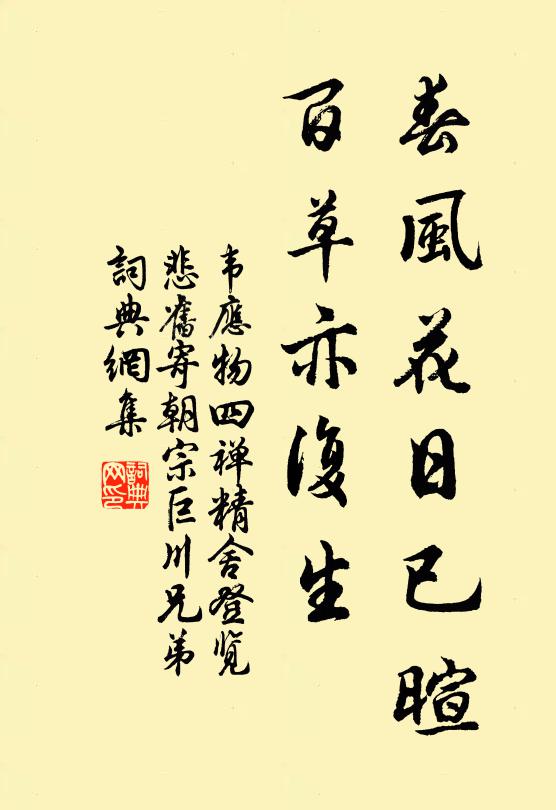 春風花日已暄
百草亦復生
韦應物四禅精舍登览
悲舊寄朝宗巨川兄弟
詞典網集
詞典
网印